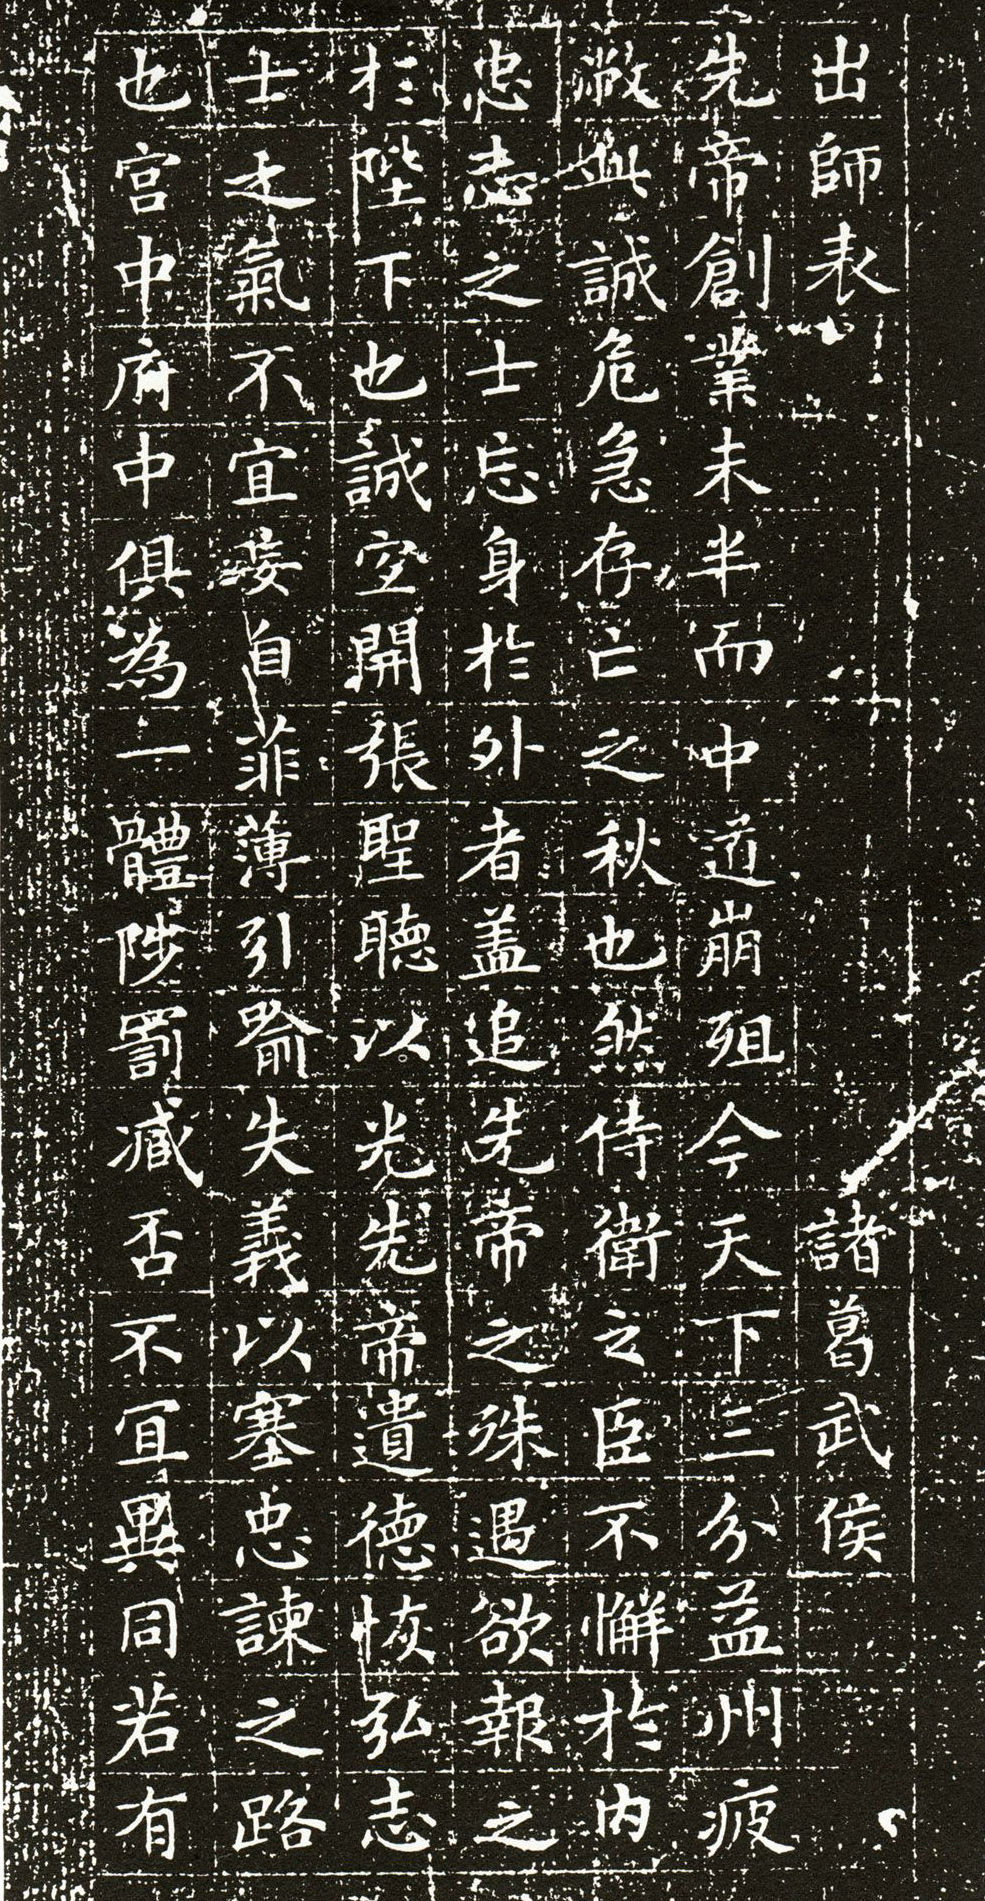 出師表 諸葛武侯
先帝創業未半而中道崩殂今天下三分益州疲
敝此誠危急存亡之秋也然侍衛之臣不懈於內
忠志之士忘身於外者盖追先帝之殊遇欲報之
於陛下也誠宜開張聖聽以光先帝遺德恢弘志
士之氣不宜妄自菲薄引喻失義以塞忠諫之路
也宮中府中俱為一體陟罰臧否不宜異同若有